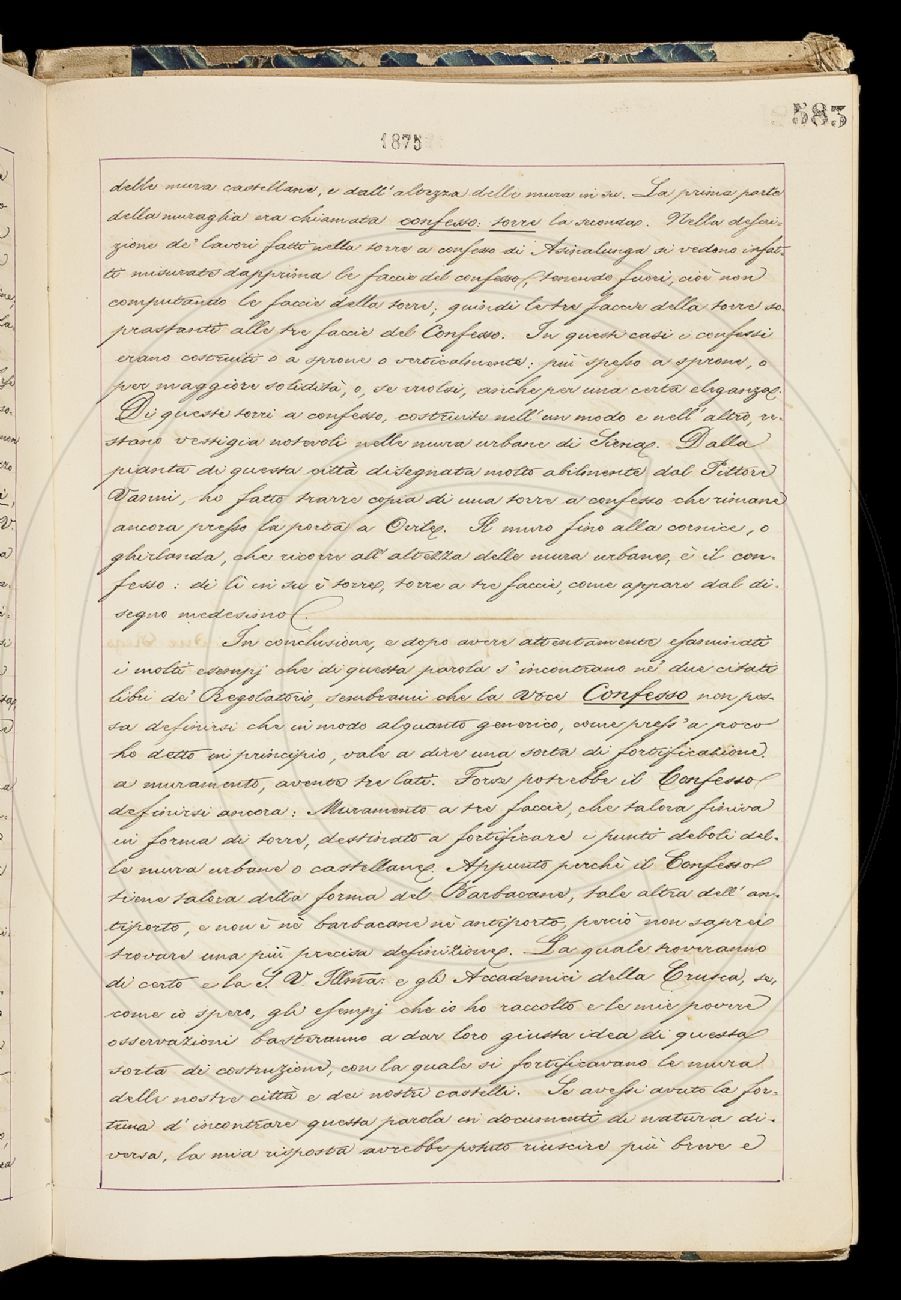 583
1875
delle mura castellane, e dall'altezza delle mura in su. La prima parte
della muraglia era chiamata confesso: torre la seconda. Nella descri-
zione de' lavori fatti nella torre a confesso di Asinalunga si vedono infat-
ti misurate dapprima le faccie del confesso, tenendo fuori, cioè non
computando le faccie della torre; quindi le tre faccie della torre so-
prastanti alle tre faccie del Confesso. In questi casi i confessi
erano costruiti o a sprone o verticalmente: più spesso a sprone, o
per maggiore solidità, o, se vuolsi, anche per una certa eleganza.
Di queste torri a confesso, costruite nell'un modo e nell'altro, re-
stano vestigia notevoli nelle mura urbane di Siena. Dalla
pianta di questa città disegnata molto abilmente dal Pittore
Vanni, ho fatto trarre copia di una torre a confesso che rimane
ancora presso la porta a Ovile. Il muro fino alla cornice, o
ghirlanda, che ricorre all'altezza delle mura urbane, è il con-
fesso: di lì in su è torre, torre a tre faccie, come appare dal di-
segno medesimo.
In conclusione, e dopo avere attentamente esaminati
i molti esempj che di questa parola s'incontrano ne' due citati
libri de' Regolatori, sembrami che la voce Confesso non pos-
sa definirsi che in modo alquanto generico, come press'a poco
ho detto in principio, vale a dire una sorta di fortificazione
a muramento, avente tre lati. Forse potrebbe il Confesso
definirsi ancora: Muramento a tre faccie, che talora finiva
in forma di torre, destinato a fortificare i punti deboli del-
le mura urbane o castellane. Appunto perchè il Confesso
tiene talora della forma del Barbacane, tale altra dell'an-
tiporto, e non è nè barbacane nè antiporto, perciò non saprei
trovare una più precisa definizione. La quale troveranno
di certo e la S. V. Illma: e gli Accademici della Crusca, se,
come io spero, gli esempj che io ho raccolto e le mie povere
osservazioni basteranno a dar loro giusta idea di questa
sorta di costruzione, con la quale si fortificavano le mura
delle nostre città e dei nostri castelli. Se avessi avuto la for-
tuna d'incontrare questa parola in documenti di natura di-
versa, la mia risposta avrebbe potuto riuscire più breve e